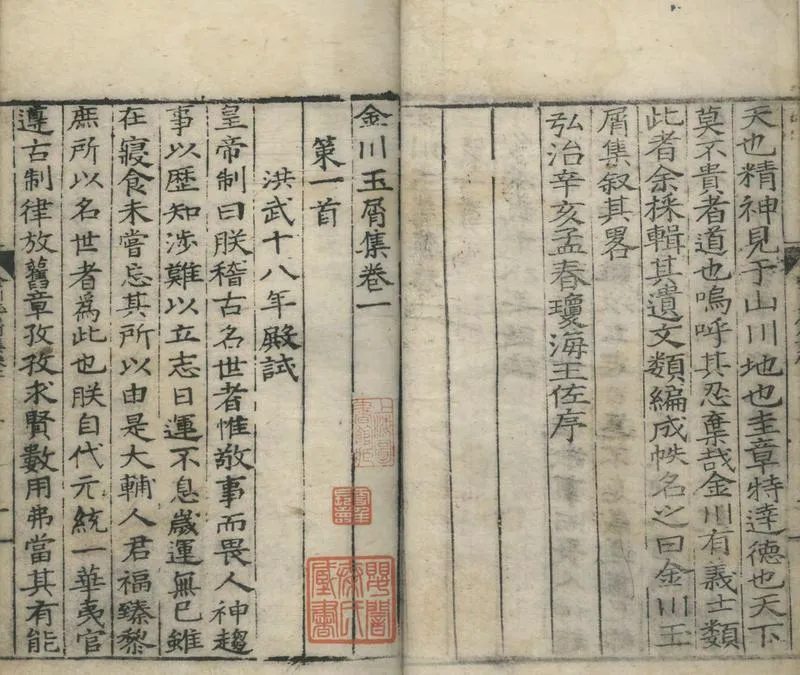 天也精神見于山川地也圭章特達德也天下
莫不貴者道也嗚呼其忍棄哉金川有義士類
此者余採輯其遺文類編成帙名之曰金川玉
屑集叙其畧
弘治辛亥孟春瓊海王佐序
金川玉屑集卷一
第一首
洪武十八年殿試
皇帝制曰朕稽古名世者惟敬事而畏人神趨
事以歴知涉難以立志日運不息歲運無已雖
在寢食未嘗忘其所以由是大輔人君福臻黎
庶所以名世者爲此也朕自代元統一華夷官
遵古制律放舊章孜孜求賢數用弗當其有能